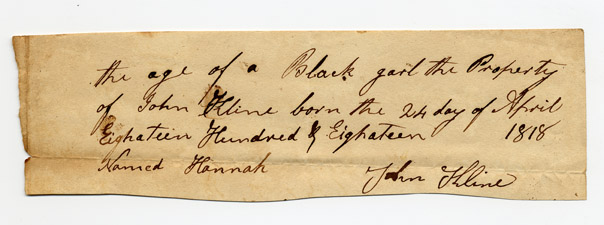 the age of a Black garl the Property
of John Kline born the 24 day of April
Eighateen Hundred & Eighateen 1818
Named Hannah John Kline